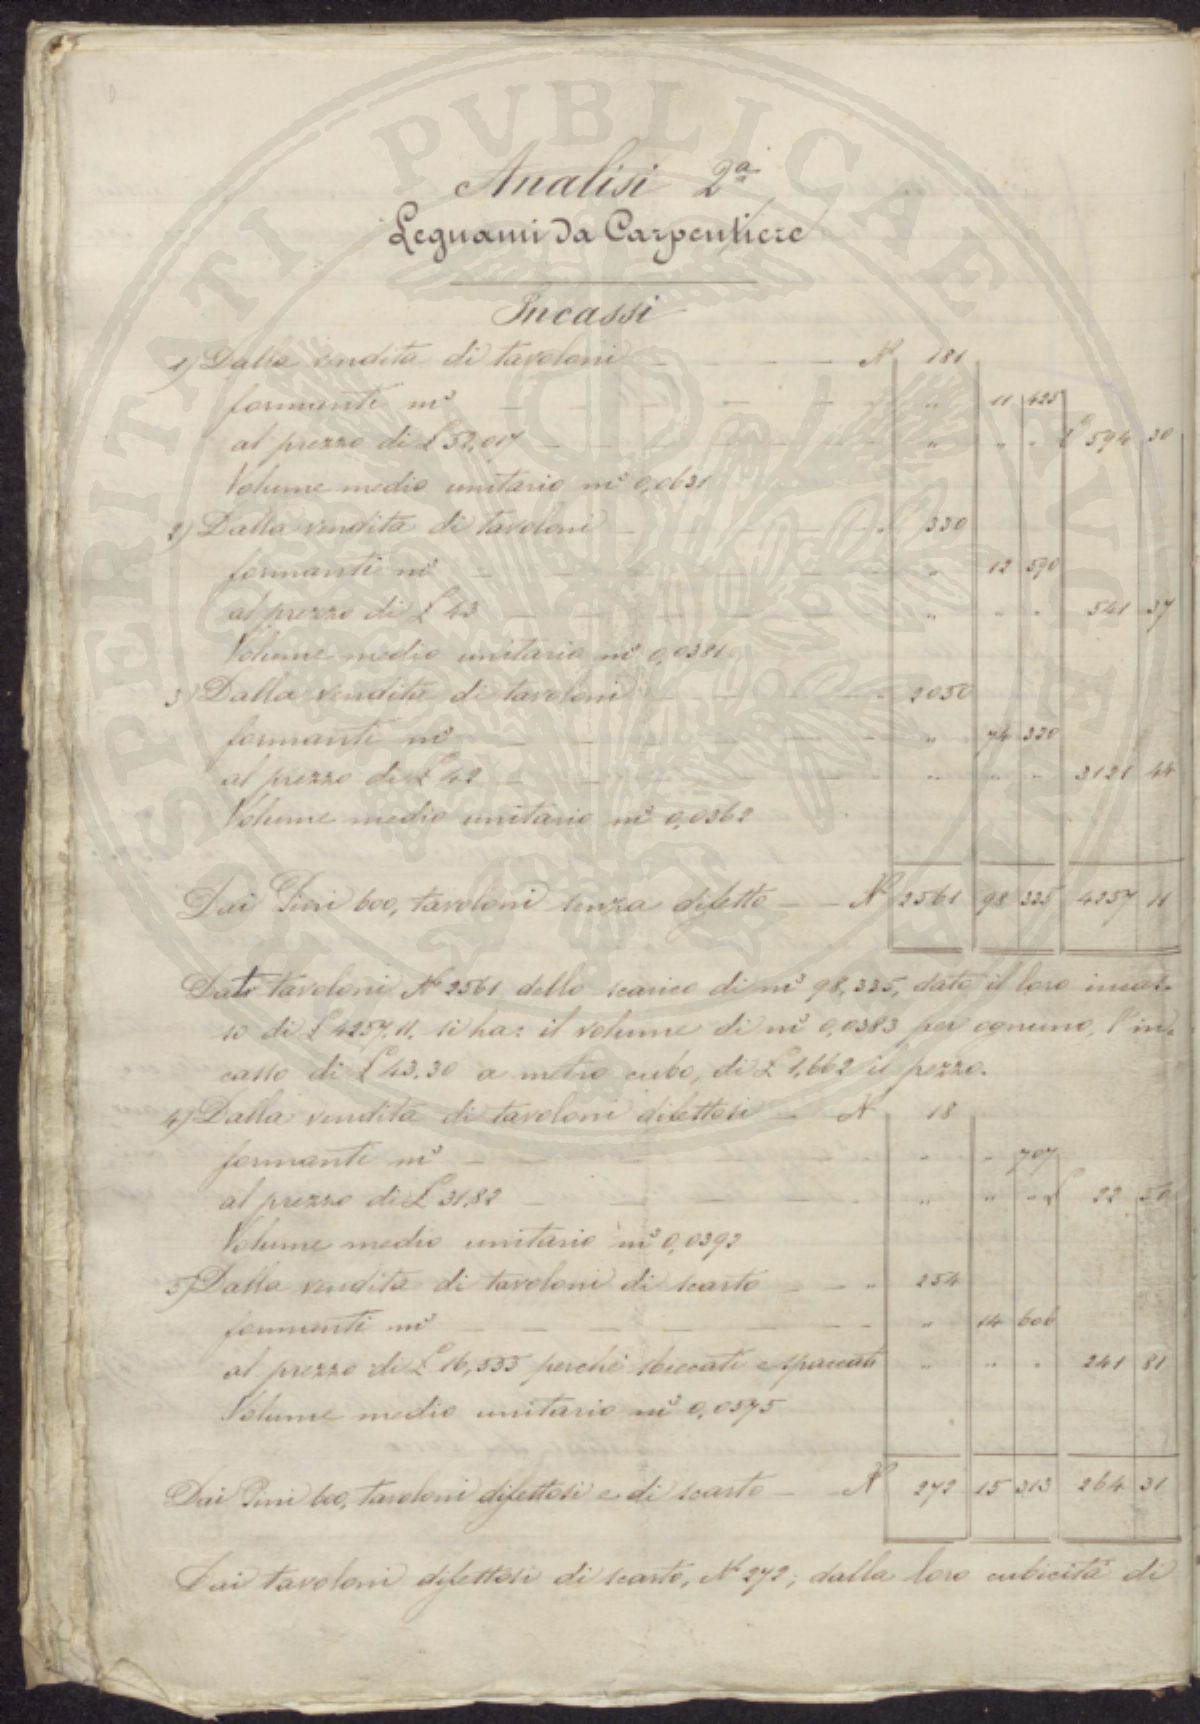 Analisi 2ª
Legnami da Carpentiere
Incassi
1) Dalla vendita di tavoloni — — — — N° 181
formanti m³ — — — — — — " 11 425
al prezzo di £ 52,017 — — — — — " " " £ 594 30
Volume medio unitario m³ 0,0631
2) Dalla vendita di tavoloni — — — — " 330
formanti m³ — — — — — — " 12 590
al prezzo di £ 43 — — — — — — " " " 541 37
Volume medio unitario m³ 0,0381
3) Dalla vendita di tavoloni — — — — " 2050
formanti m³ — — — — — — " 74 320
al prezzo di £ 42 — — — — — — " " " 3121 44
Volume medio unitario m³ 0,0362
Dai Pini 600, tavoloni senza difetto — — N° 2561 98 335 4257 11
Dati tavoloni N° 2561 dello scarico di m³ 98,335, dato il loro incas-
so di £ 4257,11, si ha: il volume di m³ 0,0383 per ognuno, l'in-
casso di £ 43,30 a metro cubo, di £ 1,662 il pezzo.
4) Dalla vendita di tavoloni difettosi — — N° 18
formanti m³ — — — — — — " " 707
al prezzo di £ 31,82 — — — — — " " " £ 22 50
Volume medio unitario m³ 0,0392
5) Dalla vendita di tavoloni di scarto — — " 254
formanti m³ — — — — — — " 14 606
al prezzo di £ 16,555 perchè sbieccati e spaccati " " " 241 81
Volume medio unitario m³ 0,0575
Dai Pini 600, tavoloni difettosi e di scarto — — N° 272 15 313 264 31
Dai tavoloni difettosi di scarto, N° 272; dalla loro cubicità di
PROSPERITATI PVBLICAE AVGENDAE